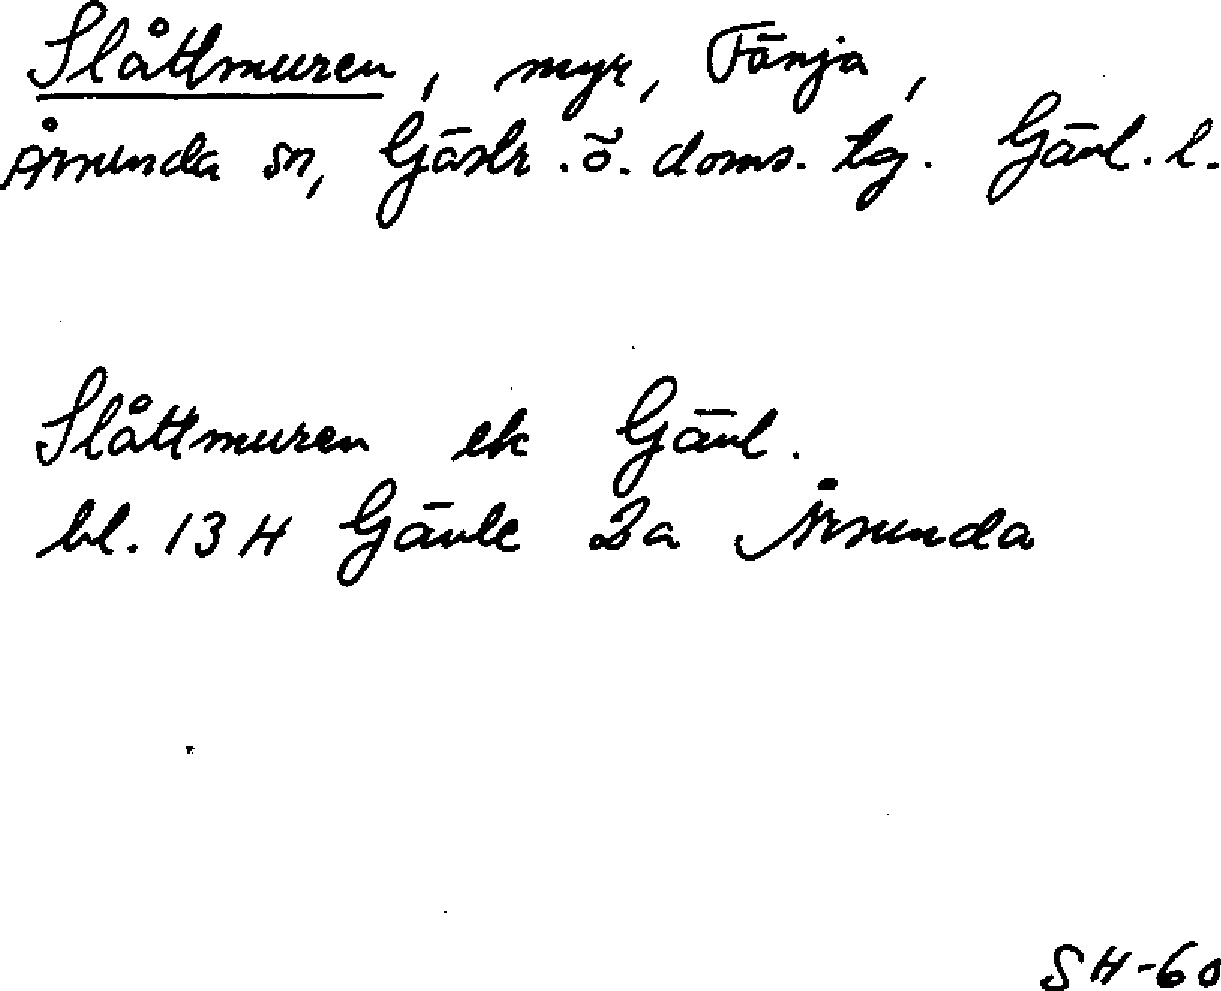 Slåttmuren, myr, Fänja,
Årsunda sn, Gästr. ö. doms. tg. Gävl. l.
Slåttmuren ek Gävl.
bl. 13 H Gävle 2a Årsunda
SH-60